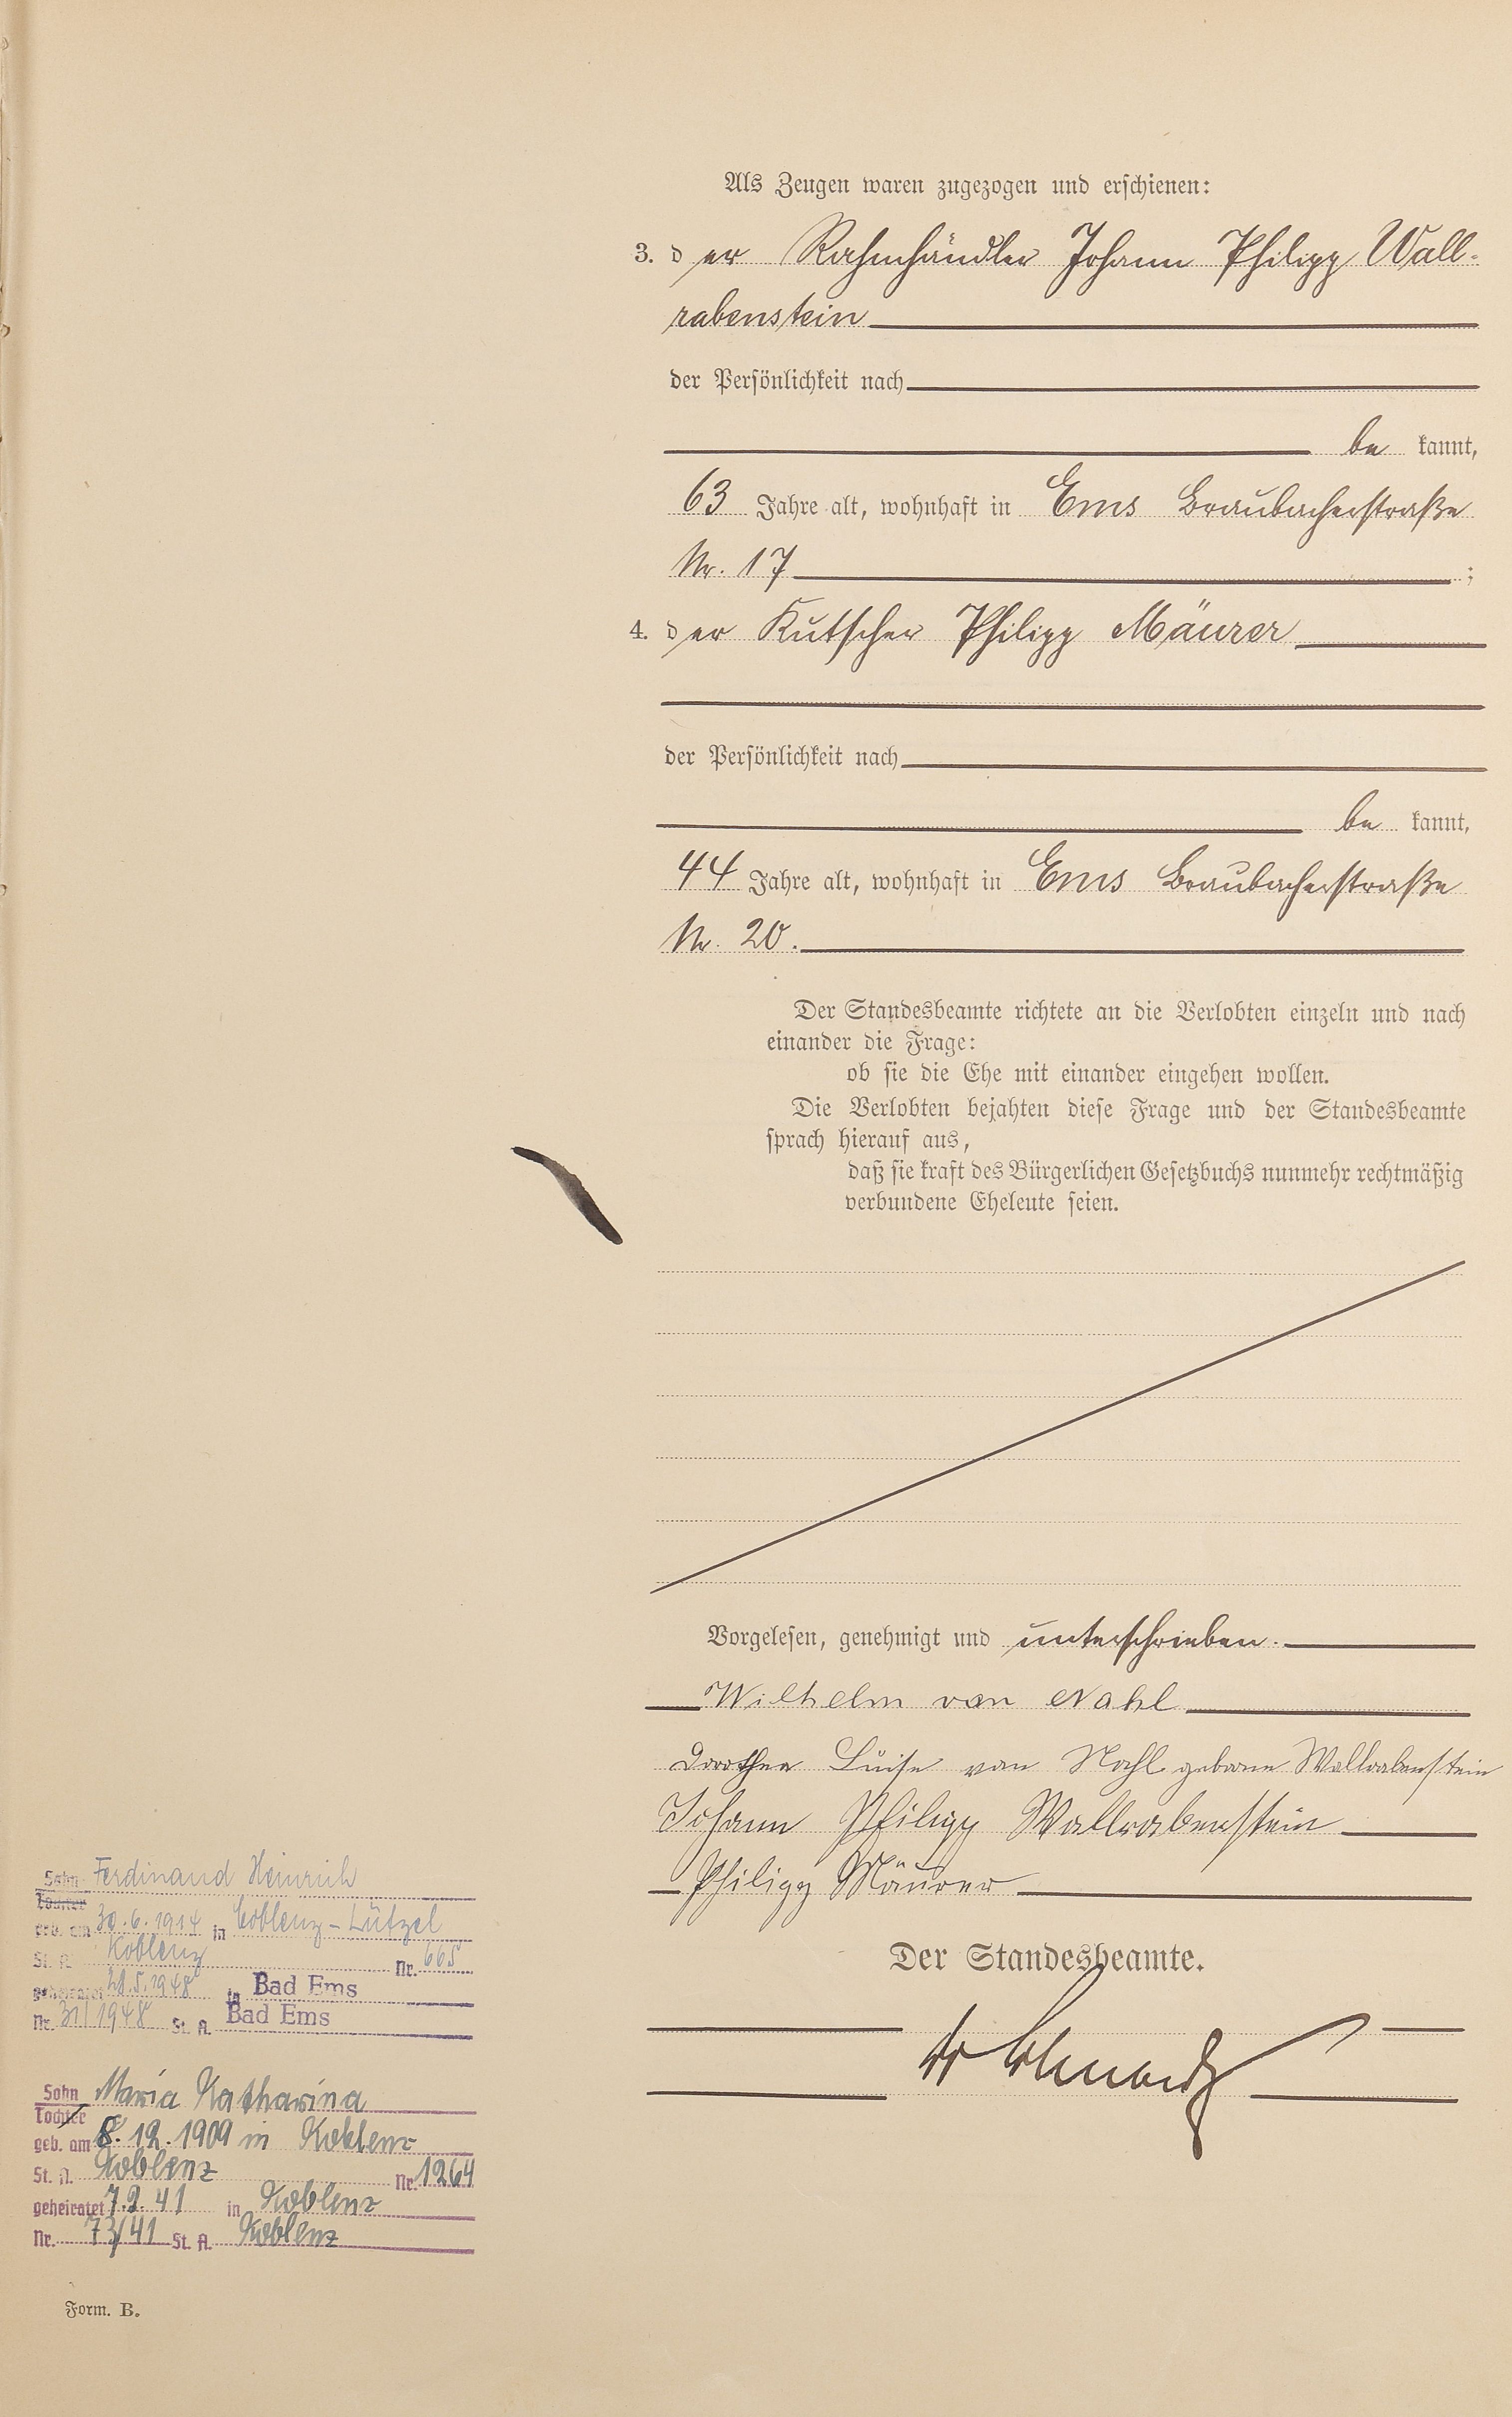 Als Zeugen waren zugezogen und erschienen:
3. der Rahmhändler Johann Philipp Wall-
rabenstein
der Persönlichkeit nach
be kannt,
63 Jahre alt, wohnhaft in Ems Braubacherstraße
Nr. 17 ;
4. der Kutscher Philipp Mäurer
der Persönlichkeit nach
be kannt,
44 Jahre alt, wohnhaft in Ems Braubacherstraße
Nr. 20.
Der Standesbeamte richtete an die Verlobten einzeln und nach
einander die Frage:
ob sie die Ehe mit einander eingehen wollen.
Die Verlobten bejahten diese Frage und der Standesbeamte
sprach hierauf aus,
daß sie kraft des Bürgerlichen Gesetzbuchs nunmehr rechtmäßig
verbundene Eheleute seien.
Vorgelesen, genehmigt und unterschrieben.
Wilhelm van Nahl
Dorothea Luise van Nahl geborne Wallrabenstein
Johann Philipp Wallrabenstein
Philipp Mäurer
Der Standesbeamte.
Sohn Ferdinand Heinrich
Tochter
geb. am 30.6.1914 in Coblenz-Lützel
St. A. Koblenz Nr. 665
geheiratet 21.5.1948 in Bad Ems
Nr. 31/1948 St. A. Bad Ems
Sohn Maria Katharina
Tochter
geb. am 8.12.1909 in Koblenz
St. A. Koblenz Nr. 1264
geheiratet 7.2.41 in Koblenz
Nr. 73/41 St. A. Koblenz
Form. B.